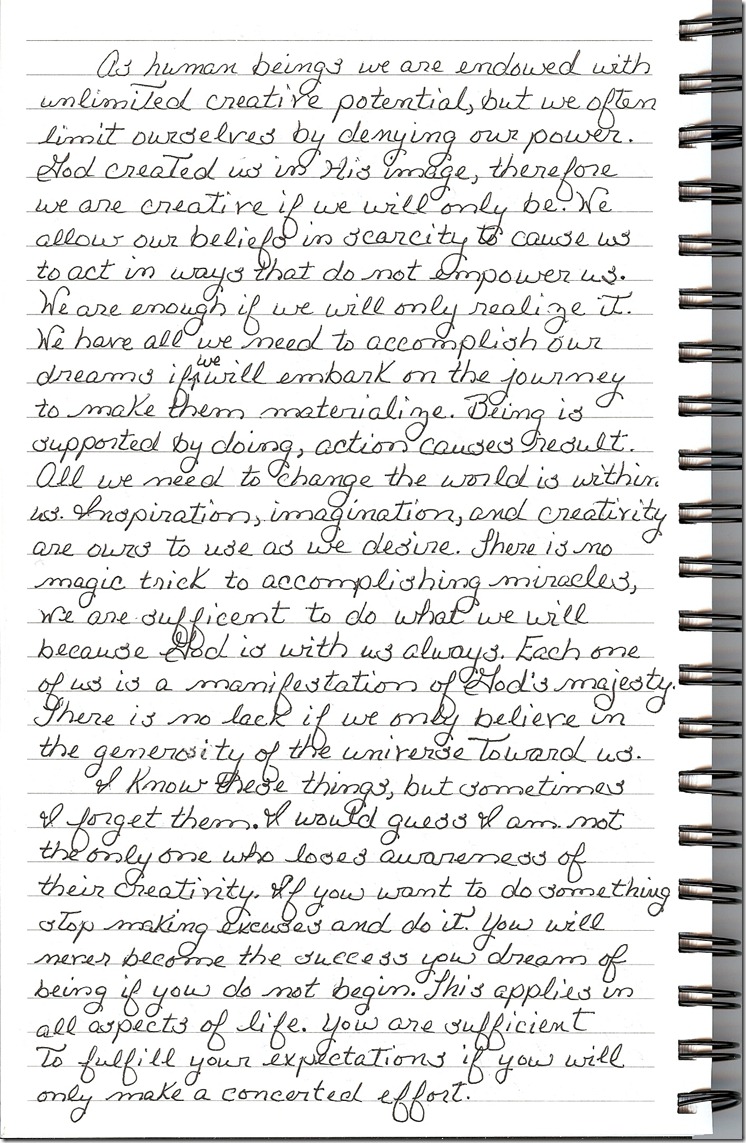 As human beings we are endowed with
unlimited creative potential, but we often
limit ourselves by denying our power.
God created us in His image, therefore
we are creative if we will only be. We
allow our beliefs in scarcity to cause us
to act in ways that do not empower us.
We are enough if we will only realize it.
We have all we need to accomplish our
dreams if we will embark on the journey
to make them materialize. Being is
supported by doing, action causes result.
All we need to change the world is within
us. Inspiration, imagination, and creativity
are ours to use as we desire. There is no
magic trick to accomplishing miracles,
we are sufficent to do what we will
because God is with us always. Each one
of us is a manifestation of God's majesty.
There is no lack if we only believe in
the generosity of the universe toward us.
I know these things, but sometimes
I forget them. I would guess I am not
the only one who loses awareness of
their creativity. If you want to do something
stop making excuses and do it. You will
never become the success you dream of
being if you do not begin. This applies in
all aspects of life. You are sufficient
to fulfill your expectations if you will
only make a concerted effort.